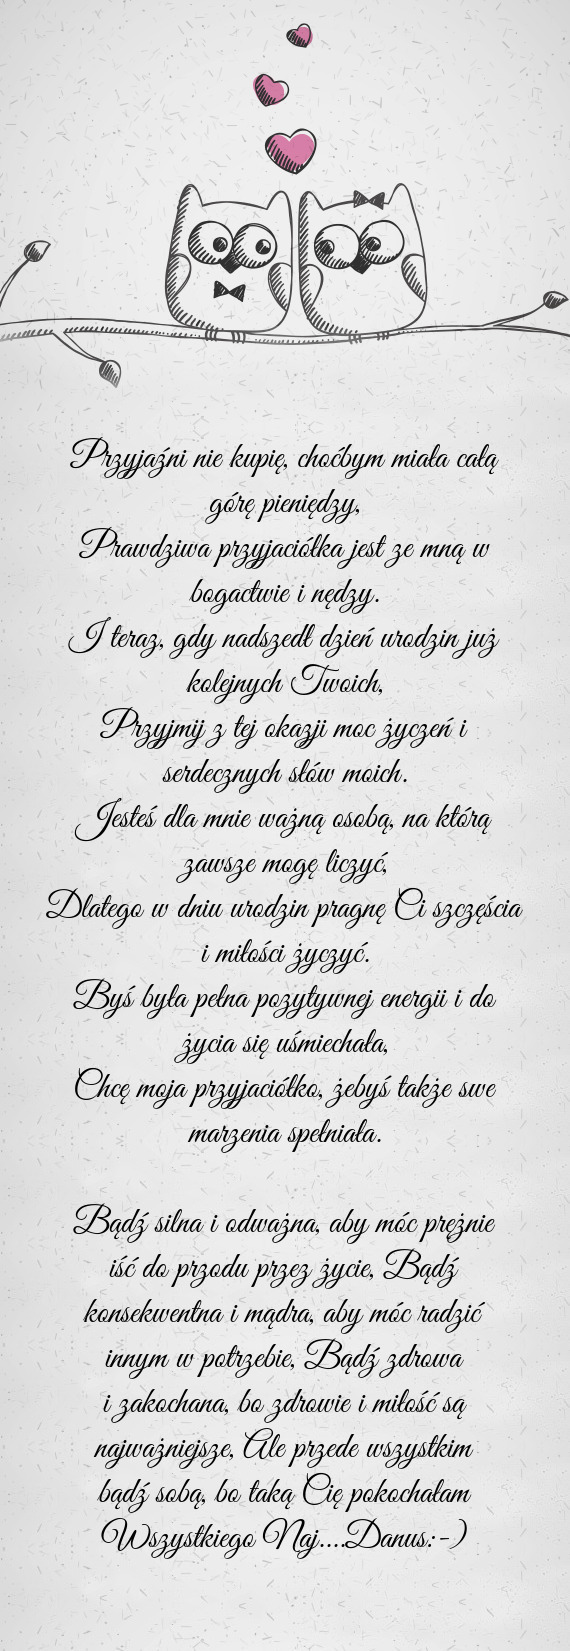 Przyjaźni nie kupię, choćbym miała całą
górę pieniędzy,
Prawdziwa przyjaciółka jest ze mną w
bogactwie i nędzy.
I teraz, gdy nadszedł dzień urodzin już
kolejnych Twoich,
Przyjmij z tej okazji moc życzeń i
serdecznych słów moich.
Jesteś dla mnie ważną osobą, na którą
zawsze mogę liczyć,
Dlatego w dniu urodzin pragnę Ci szczęścia
i miłości życzyć.
Byś była pełna pozytywnej energii i do
życia się uśmiechała,
Chcę moja przyjaciółko, żebyś także swe
marzenia spełniała.
Bądź silna i odważna, aby móc prężnie
iść do przodu przez życie, Bądź
konsekwentna i mądra, aby móc radzić
innym w potrzebie, Bądź zdrowa
i zakochana, bo zdrowie i miłość są
najważniejsze, Ale przede wszystkim
bądź sobą, bo taką Cię pokochałam
Wszystkiego Naj....Danus:-)